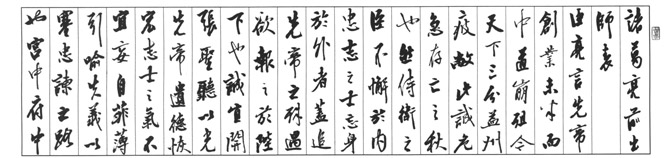 諸葛亮前出
師表
臣亮言先帝
創業未半而
中道崩殂今
天下三分益州
疲敝此誠危
急存亡之秋
也然侍衛之
臣不懈於內
忠志之士忘身
於外者蓋追
先帝之殊遇
欲報之於陛
下也誠宜開
張聖聽以光
先帝遺德恢
宏志士之氣不
宜妄自菲薄
引喻失義以
塞忠諫之路
也宮中府中